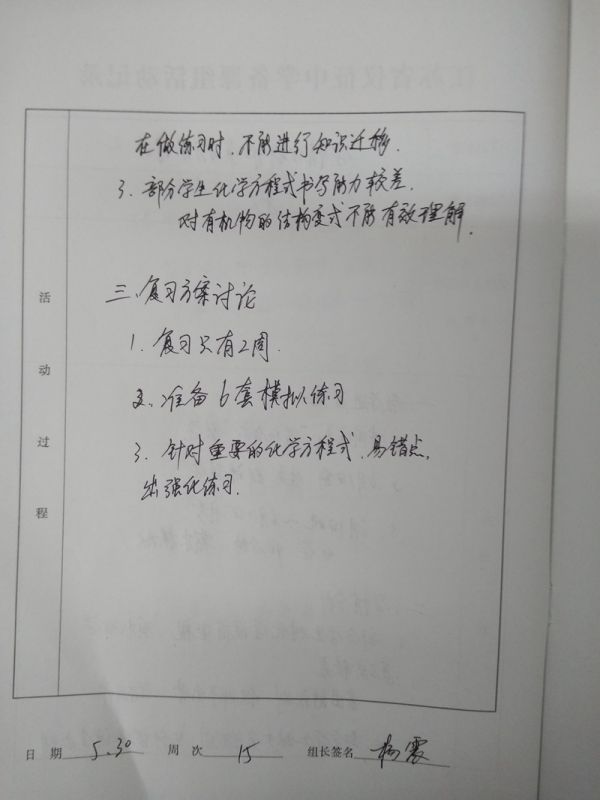 在做练习时，不能进行知识迁移。
3. 部分学生化学方程式书写能力较差，
对有机物的结构变式不能有效理解。
三、复习方案讨论
1. 复习只有2周。
2. 准备6套模拟练习
3. 针对重要的化学方程式，易错点，
出强化练习。
活动过程
日 期 5.30 周 次 15 组长签名 杨震